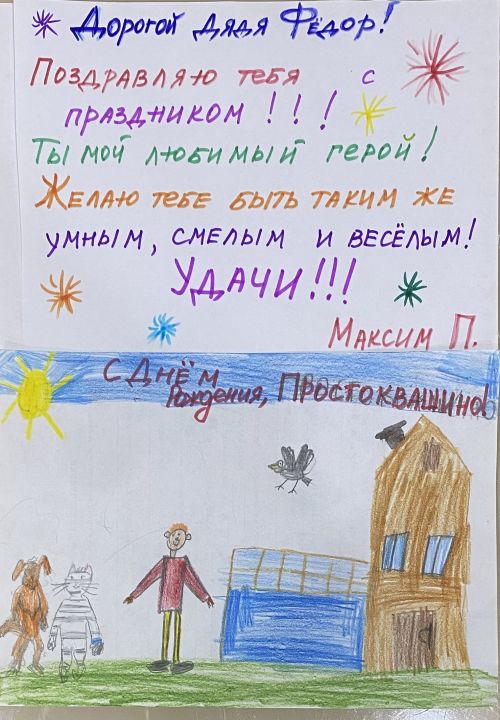 Дорогой дядя Фёдор!
Поздравляю тебя с
праздником!!!
Ты мой любимый герой!
Желаю тебе быть таким же
умным, смелым и весёлым!
Удачи!!!
Максим П.
С Днём
Рождения, Простоквашино!